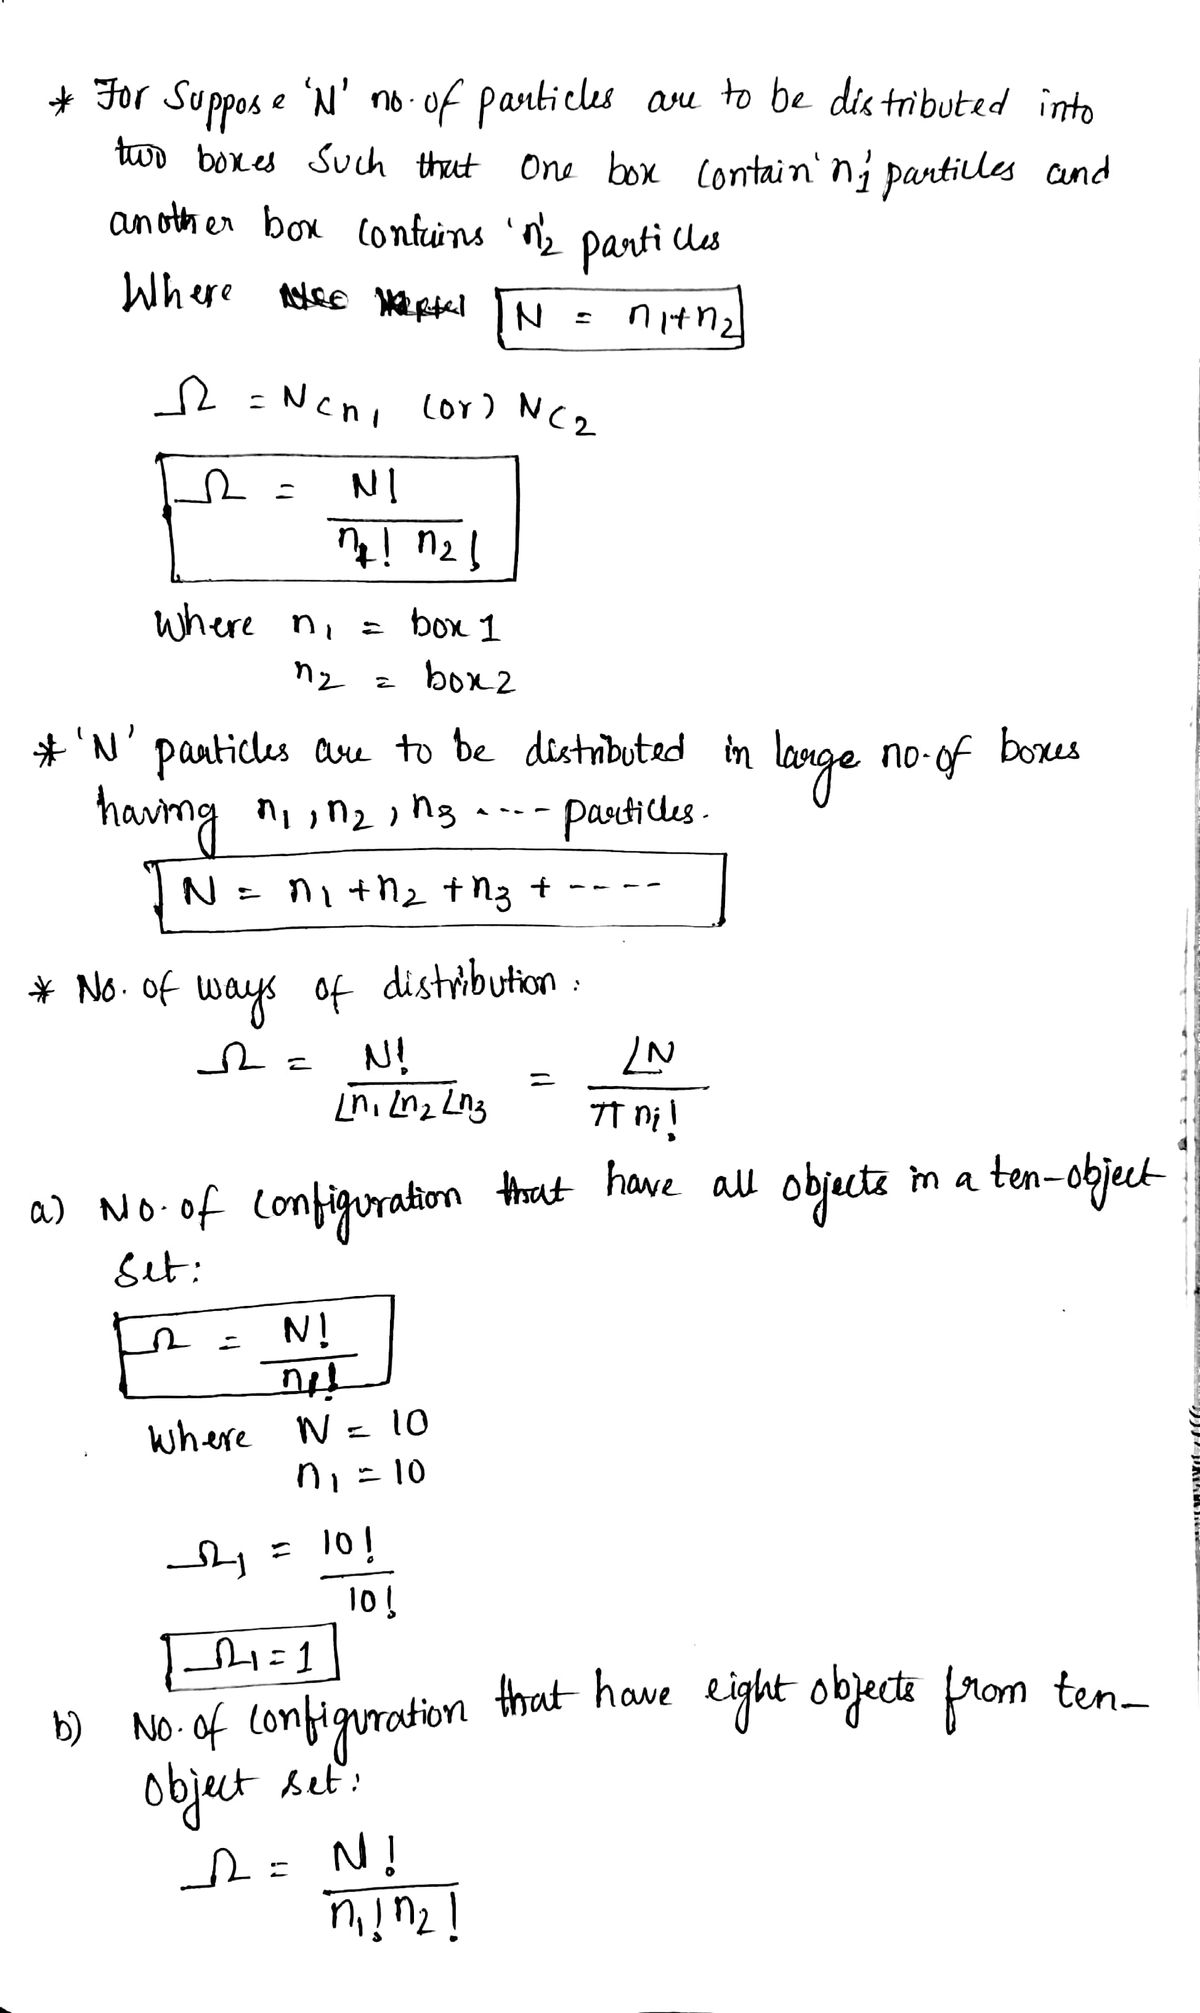 * For Suppose 'N' no. of particles are to be distributed into
two boxes such that one box contain 'n1' particles and
another box contains 'n2' particles
Where N = n1+n2
Ω = NCn1 (or) NC2
Ω = N! / n1! n2!
Where n1 = box 1
n2 = box 2
* 'N' particles are to be distributed in large no. of boxes
having n1, n2, n3 ---- particles.
N = n1 + n2 + n3 + -----
* No. of ways of distribution :
Ω = N! / ∠n1 ∠n2 ∠n3 = ∠N / π ni!
a) No. of configuration that have all objects in a ten-object
set:
Ω = N! / n1!
Where N = 10
n1 = 10
Ω1 = 10! / 10!
Ω1 = 1
b) No. of configuration that have eight objects from ten-
object set:
Ω = N! / n1! n2!